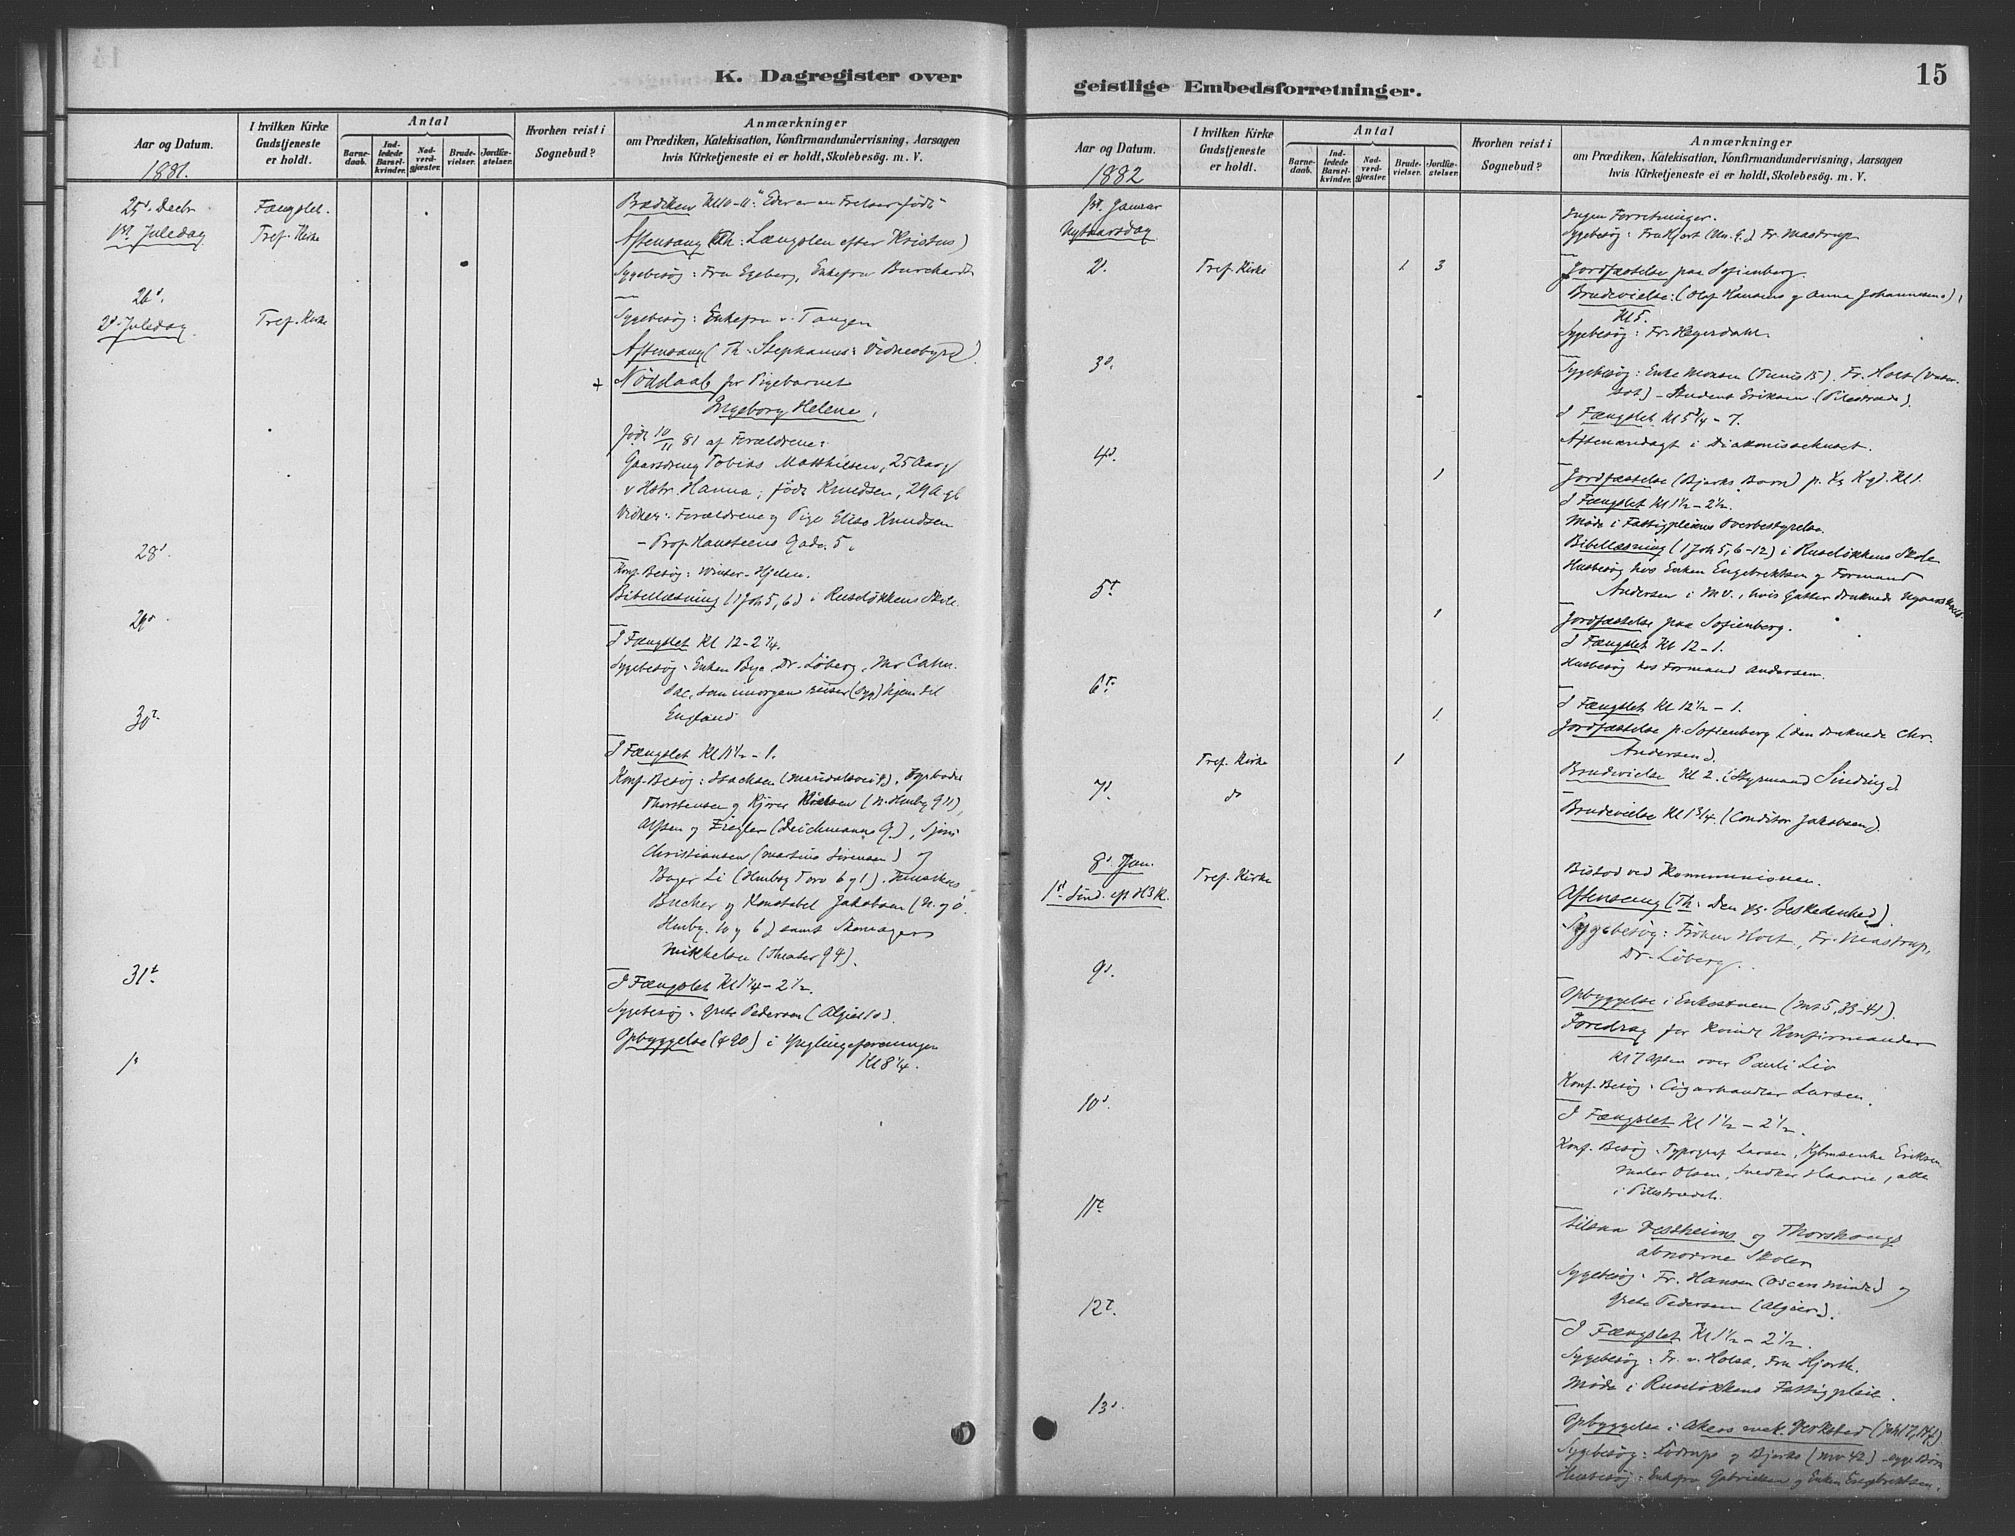 K. Dagregister over
Aar og Datum.
1881.
I hvilken Kirke
Gudstjeneste
er holdt.
Antal
Barne-
daab.
Ind-
ledede
Barsel-
kvinder.
Nad-
verd-
gjæster.
Brude-
vielser.
Jordfæ-
stelser.
Hvorhen reist i
Sognebud?
Anmærkninger
om Prædiken, Katekisation, Konfirmandundervisning, Aarsagen
hvis Kirketjeneste ei er holdt, Skolebesög. m. V.
25d. Decbr Fængslet.
1st Juledag Tref. Kirke
Aftensang (Th: Længslen efter Kristus)
Sygebesög: Fru Egeberg, Enkefru Burchardt
26d.
2d. Juledag Tref. Kirke
Sygebesög: Enkefru v. Tangen
Aftensang (Th. Stephanus: Vidnesbyrd)
+ Nöddaab for Pigebarnet
Ingeborg Helene,
født 10/11 81 af Forældrene:
Gaardsdreng Tobias Matthiesen, 25 Aar gl
v Hstr. Hanna, født Knudsen, 29 A. gl
Vidner: Forældrene og Pige Elise Knudsen
– Prof. Hansteens Gade 5.
28d.
Konf. Besög: Winter-Hjelm.
Bibellæsning (1 Joh 5, 6) i Ruselökkens Skole
29d
I Fængslet Kl 12-2 1/4.
Sygebesög: Enken Bye, Dr. Löberg, Mr Cahn.
som imorgen reiser (syg) hjem til
England
30t
I Fængslet Kl 11 1/2 – 1.
Konf. Besög: Isachsen
Thorstensen og
Alfsen og Ziegler (Deichmanns G.),
Christiansen (Martins Sörensen) og
Bager Li (Hmbg Torv 6 og 1).
Bucher og Konstabel Jakobsen (N. og Ö.
Hmbg. 10 og 6) samt Skomager
Mikkelsen (Theater G 4).
31t.
I Fængslet Kl 1 1/4 – 2 1/2.
Sygebesög: Grete Pedersen (Algier 10).
Opbyggelse (490) i Ynglingeforeningen
Kl 8 1/4.
1s
geistlige Embedsforretninger.
15
Aar og Datum.
1882
I hvilken Kirke
Gudstjeneste
er holdt.
Antal
Barne-
daab.
Ind-
ledede
Barsel-
kvinder.
Nad-
verd-
gjæster.
Brude-
vielser.
Jordfæ-
stelser.
Hvorhen reist i
Sognebud?
Anmærkninger
om Prædiken, Katekisation, Konfirmandundervisning, Aarsagen
hvis Kirketjeneste ei er holdt, Skolebesög. m. V.
1st. Januar
Nytaarsdag
Ingen Forretninger.
Sygebesög: Fru Hjort (Un. G.) Fr. Mastrup
2d. Tref. Kirke 1 3
Jordfæstelse paa Sofienberg.
Brudevielse: (Olaf Hansens og Anna Johannsens)
Kl 5.
Sygebesög: Fr. Heyerdahl.
3d.
Sygebesög: Enke Monsen (Tunis 15). Fr. Holst
– Student Eriksen. (Pilestræde).
I Fængslet Kl 5 3/4 – 7.
Aftenandagt i Diakonissehuset.
4d. 1
Jordfæstelse (Bjerks Barn) Kl 1.
I Fængslet Kl 1 1/2 – 2 1/2.
Möde i Fattigpleiens Overbestyrelse.
Bibellæsning (1 Joh 5, 6-12) i Ruselökkens Skole
Husbesög hos Enken Engebrektsen og Formand
Andersen i M V., hvis Gutter druknede
5t 1
Jordfæstelse paa Sofienberg.
I Fængslet Kl 12-1.
Husbesög hos Formand Andersen.
6t. 1
I Fængslet Kl 12 1/2 – 1.
Jordfæstelse p. Sofienberg (den druknede Chr.
Andersen).
Tref. Kirke 1
Brudevielse Kl 2. (Styrmand Sinding)
7d. do
Brudevielse Kl 1 3/4. (Conditor Jakobsen).
8d. Jan.
1st. Sönd. eft H3K. Tref. Kirke
Bistod ved Kommunionen.
Aftensang (Th: Den Beskedenhed).
Sygebesög: Fröken Holt, Fr. Mastrup,
Dr. Löberg.
9d.
Opbyggelse i Enkestuen (Mt 5, 33-41).
Foredrag for kvindl Konfirmander
Kl 7 Aften over Pauli Liv
Konf. Besög: Cigarhandler Larsen.
10d.
I Fængslet Kl 1 1/2 – 2 1/2.
Konf. Besög: Typograf Larsen, Eriksen
Maler Olsen, Snedker Haavie, alle
i Pilestrædet.
11t.
Vestheims og Thorshaugs
abnorme Skoler
Sygebesög: Fr. Hansen (Oscars Minde) og
Grete Pedersen (Algier).
12t.
I Fængslet Kl 1 1/2 – 2 1/2.
Sygebesög: Fr. v. Holst, Fru Hjorth.
Möde i Ruselökkens Fattigpleie.
13d.
Opbyggelse i Akers mek. Verksted
Sygebesög: og Bjerks (MV 42)
Husbesög: Enkefru Gabrielsen og Enken Engebrektsen.